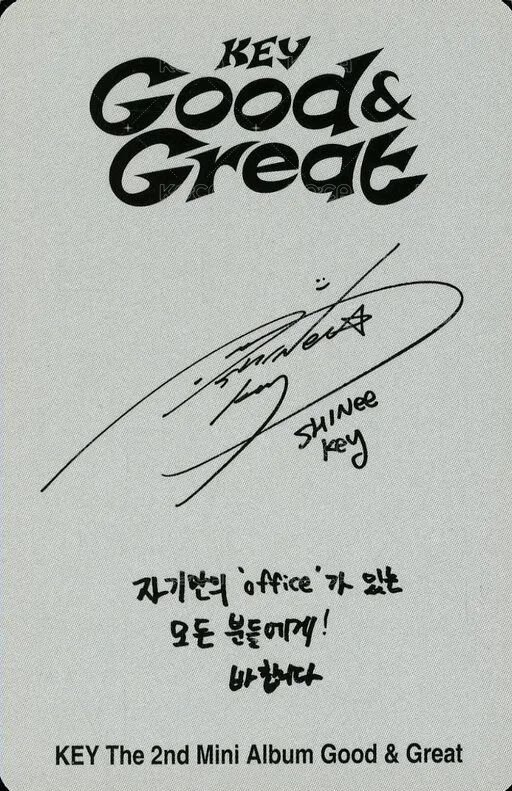 KEY
Good &
Great
SHINee
key
SHINee
key
자기만의 'office'가 있는
모든 분들에게!
바칩니다
KEY The 2nd Mini Album Good & Great